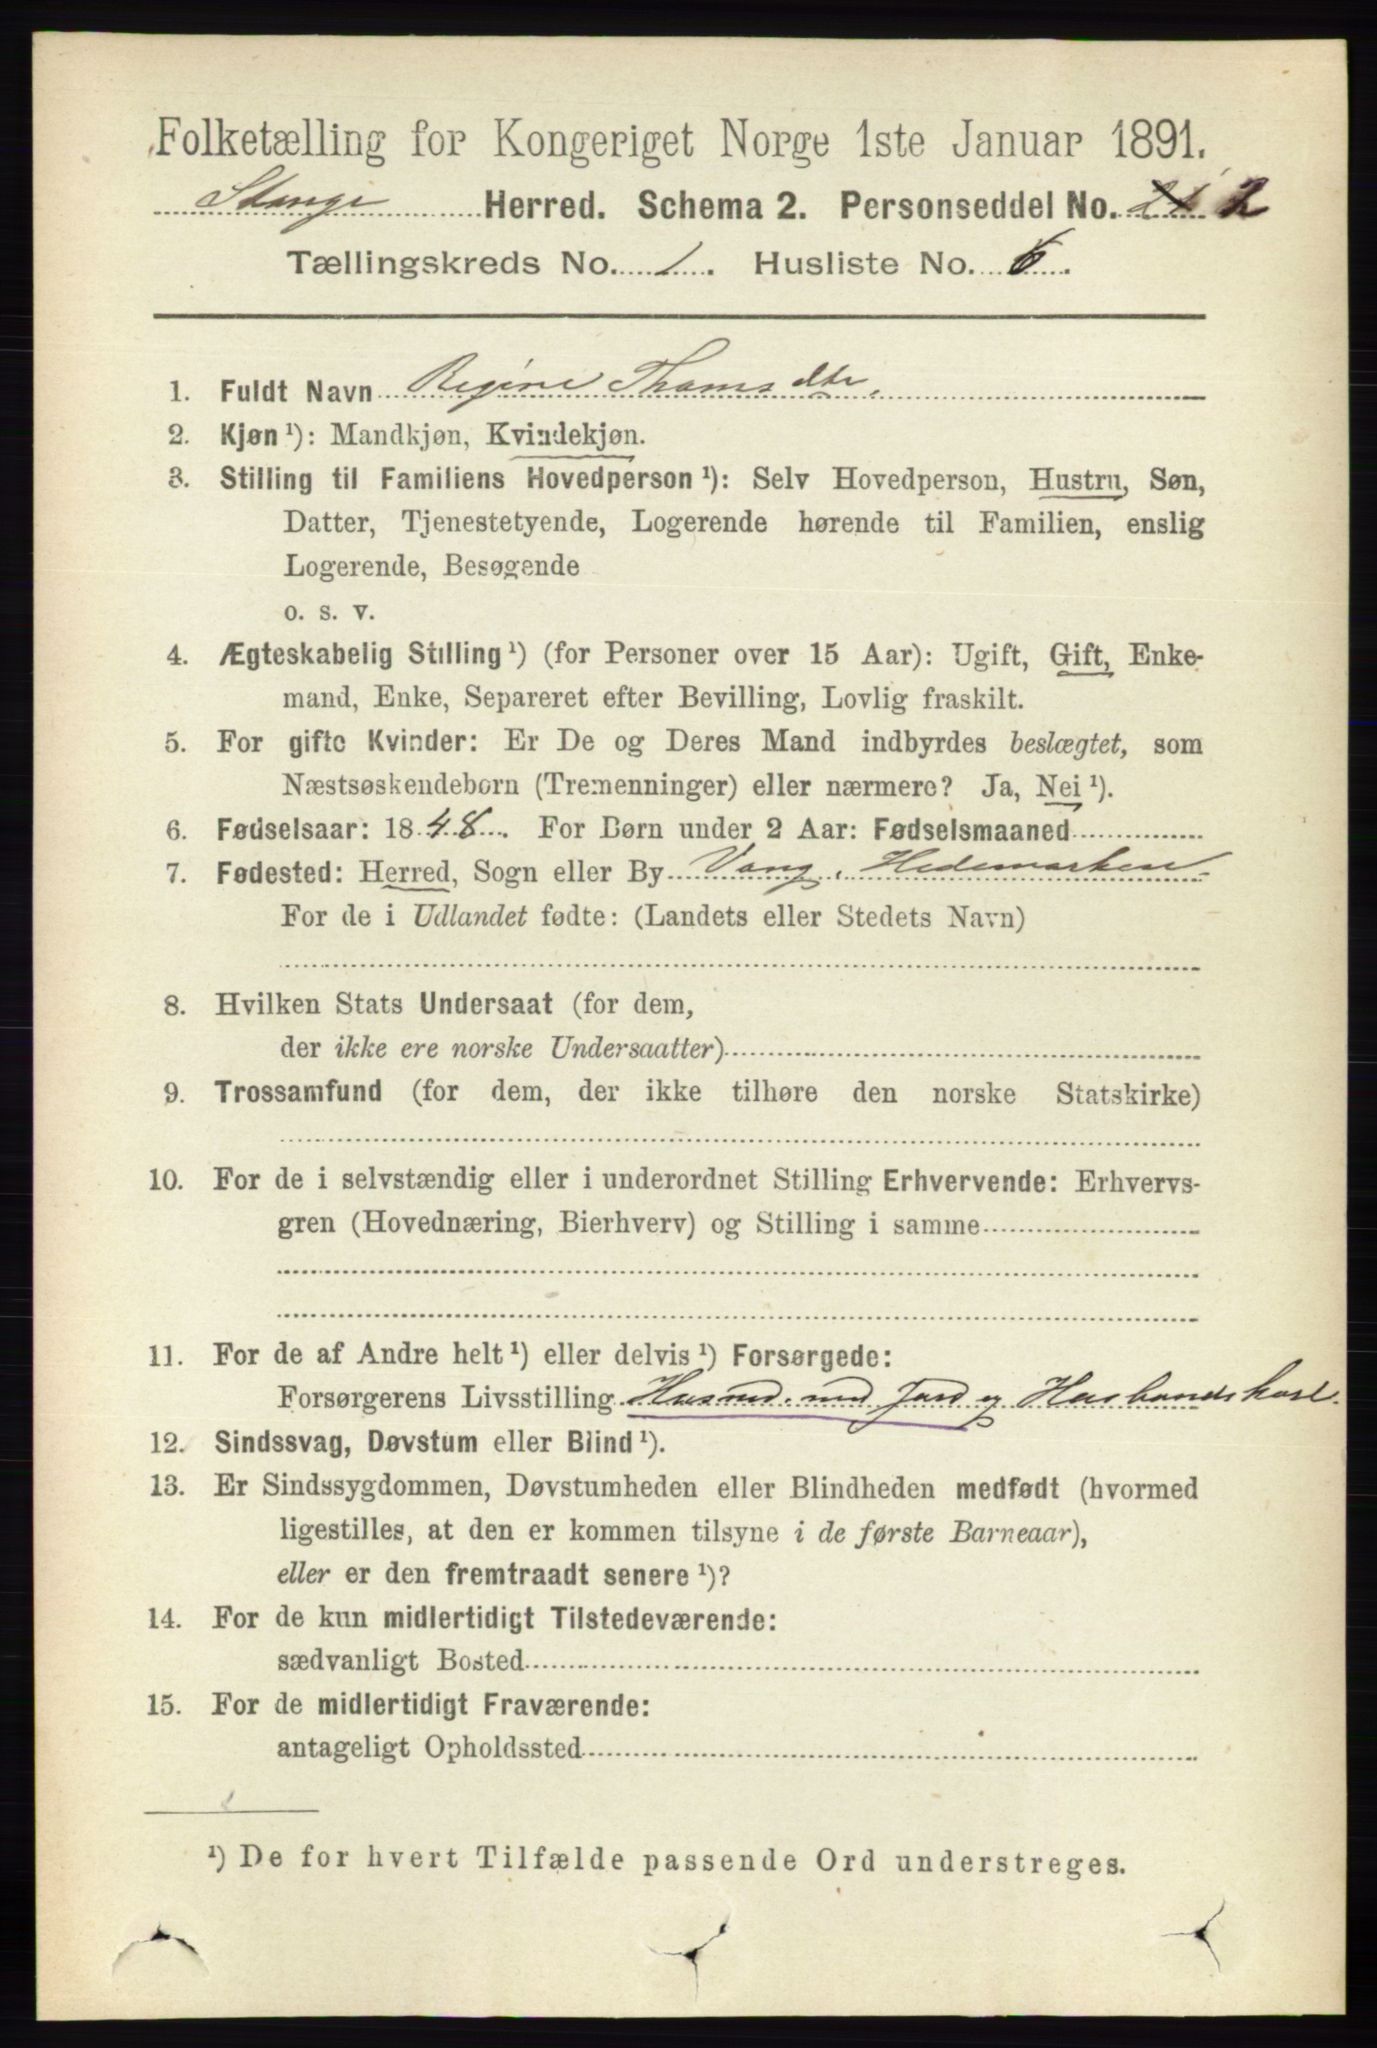 Folketælling for Kongeriget Norge 1ste Januar 1891.
Stange Herred. Schema 2. Personseddel No. 2
Tællingskreds No. 1. Husliste No. 6.
1. Fuldt Navn Regine Thomsdtr.
2. Kjøn ¹): Mandkjøn, Kvindekjøn.
3. Stilling til Familiens Hovedperson ¹): Selv Hovedperson, Hustru, Søn,
Datter, Tjenestetyende, Logerende hørende til Familien, enslig
Logerende, Besøgende
o. s. v.
4. Ægteskabelig Stilling ¹) (for Personer over 15 Aar): Ugift, Gift, Enke-
mand, Enke, Separeret efter Bevilling, Lovlig fraskilt.
5. For gifte Kvinder: Er De og Deres Mand indbyrdes beslægtet, som
Næstsøskendebørn (Tremenninger) eller nærmere? Ja, Nei ¹).
6. Fødselsaar: 1848. For Børn under 2 Aar: Fødselsmaaned
7. Fødested: Herred, Sogn eller By Vang, Hedemarken
For de i Udlandet fødte: (Landets eller Stedets Navn)
8. Hvilken Stats Undersaat (for dem,
der ikke ere norske Undersaatter)
9. Trossamfund (for dem, der ikke tilhøre den norske Statskirke)
10. For de i selvstændig eller i underordnet Stilling Erhvervende: Erhvervs-
gren (Hovednæring, Bierhverv) og Stilling i samme
11. For de af Andre helt ¹) eller delvis ¹) Forsørgede:
Forsørgerens Livsstilling Husmd. med Jord og Husbondskarl.
12. Sindssvag, Døvstum eller Blind ¹).
13. Er Sindssygdommen, Døvstumheden eller Blindheden medfødt (hvormed
ligestilles, at den er kommen tilsyne i de første Barneaar),
eller er den fremtraadt senere ¹)?
14. For de kun midlertidigt Tilstedeværende:
sædvanligt Bosted
15. For de midlertidigt Fraværende:
antageligt Opholdssted
¹) De for hvert Tilfælde passende Ord understreges.